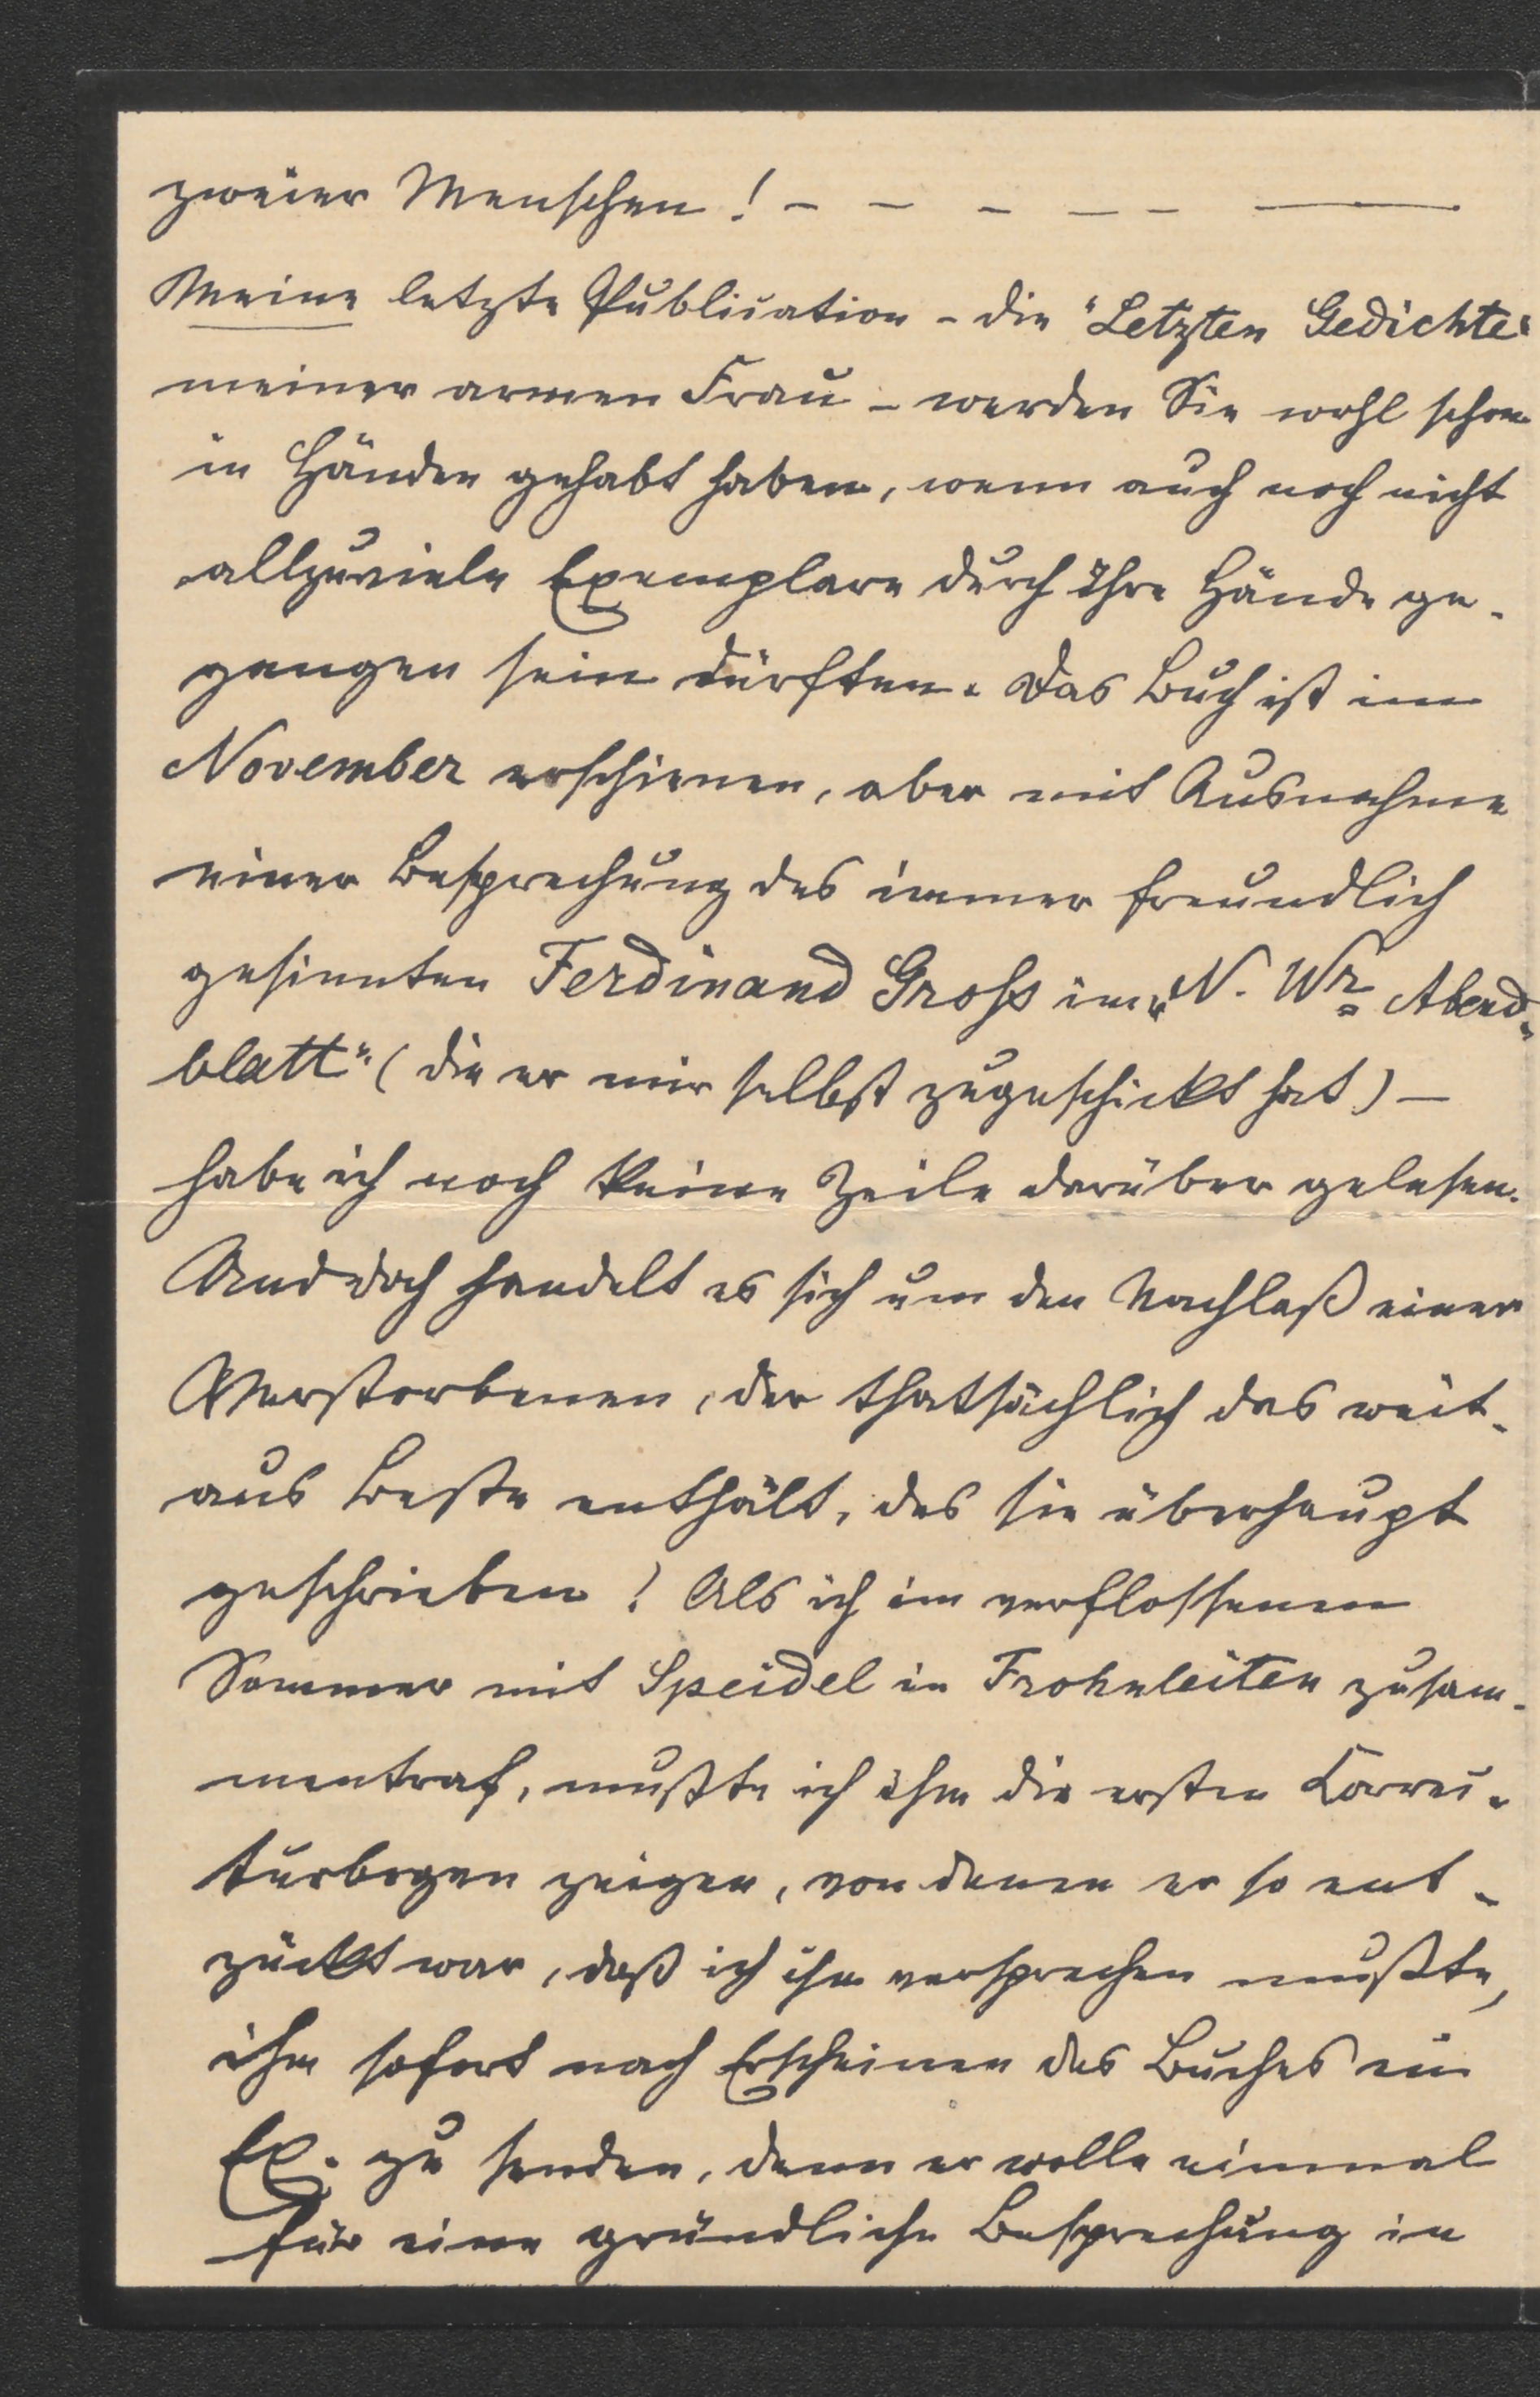 zweier Menschen! – – – – – ——
Meine letzte Publication – die "Letzten Gedichte"
meiner armen Frau – werden Sie wohl schon
in Händen gehabt haben, wenn auch noch nicht
allzuviele Exemplare durch Ihre Hände ge-
gangen sein dürften. Das Buch ist im
November erschienen, aber mit Ausnahme
einer Besprechung des immer freundlich
gesinnten Ferdinand Gross im „N. Wr. Abend-
blatt" (die er mir selbst zugeschickt hat) –
habe ich noch keine Zeile darüber gelesen.
Und doch handelt es sich um den Nachlaß einer
Verstorbenen, der thatsächlich das weit-
aus Beste enthält, das sie überhaupt
geschrieben! Als ich im verflossenen
Sommer mit Speidel in Frohnleiten zusam-
mentraf, mußte ich ihm die ersten Correc-
turbogen zeigen, von denen er so ent-
zückt war, daß ich ihm versprechen mußte,
ihm sofort nach Erscheinen des Buches ein
Ex. zu senden, denn er wolle einmal
für eine gründliche Besprechung in